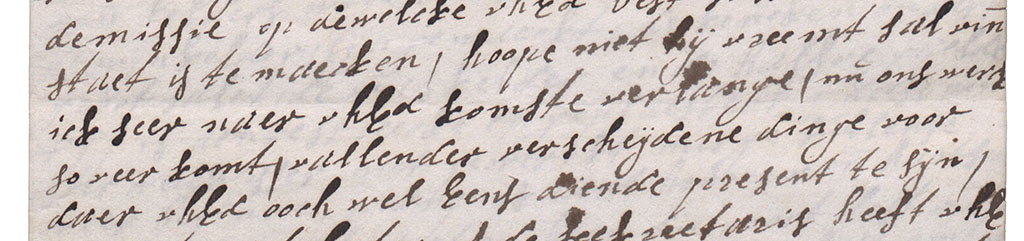 demissie op dewelcke vhEd
staet is te maecken, hoope niet hij vreemt sal vin
ick seer naer vhEd komste verlange, nu ons werck
so veer komt, vallender verscheijdene dinge voor
daer vhEd ooch wel eens diende present te sijn,
de secreetaris heeft vhE